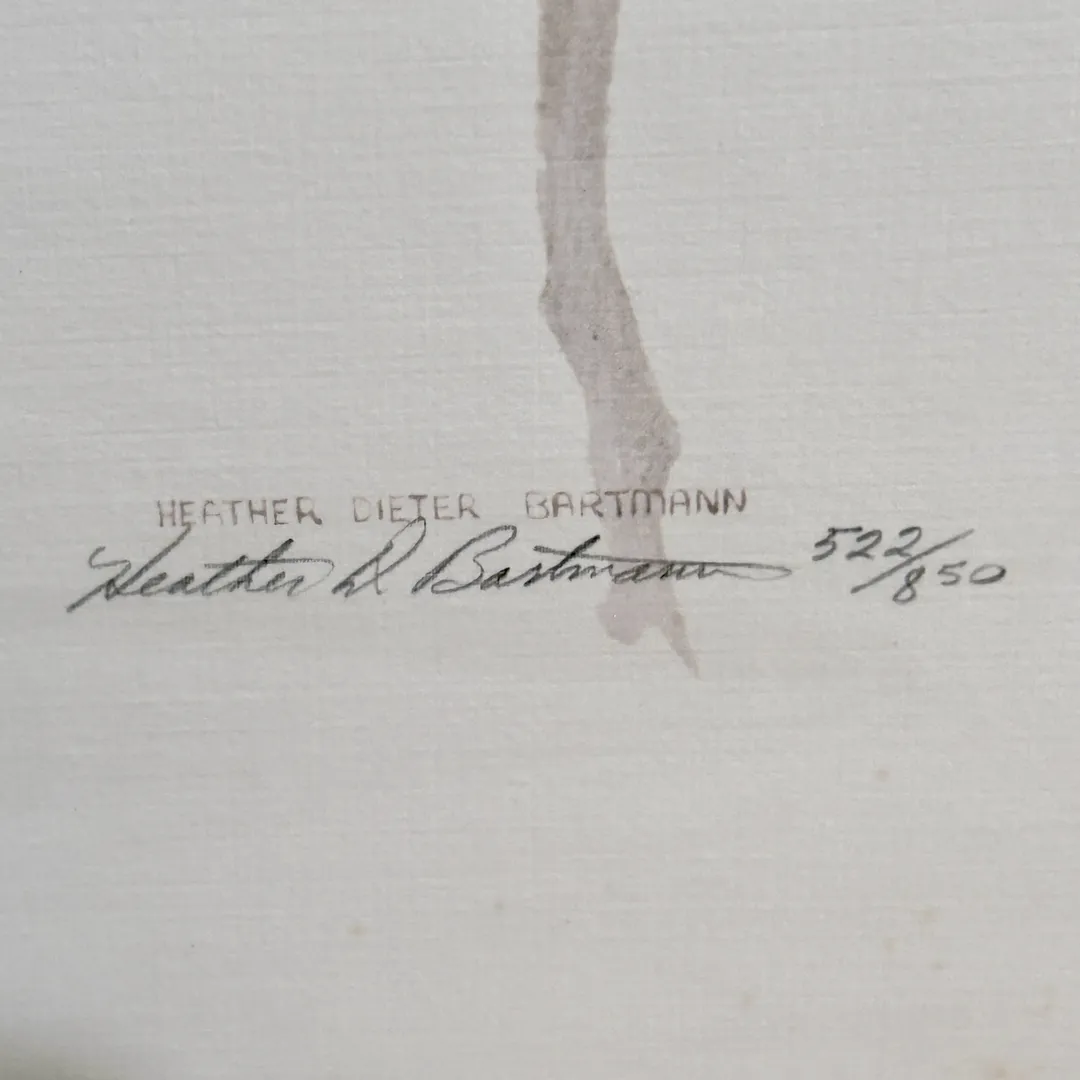 HEATHER DIETER BARTMANN
Heather D Bartmann 522/850